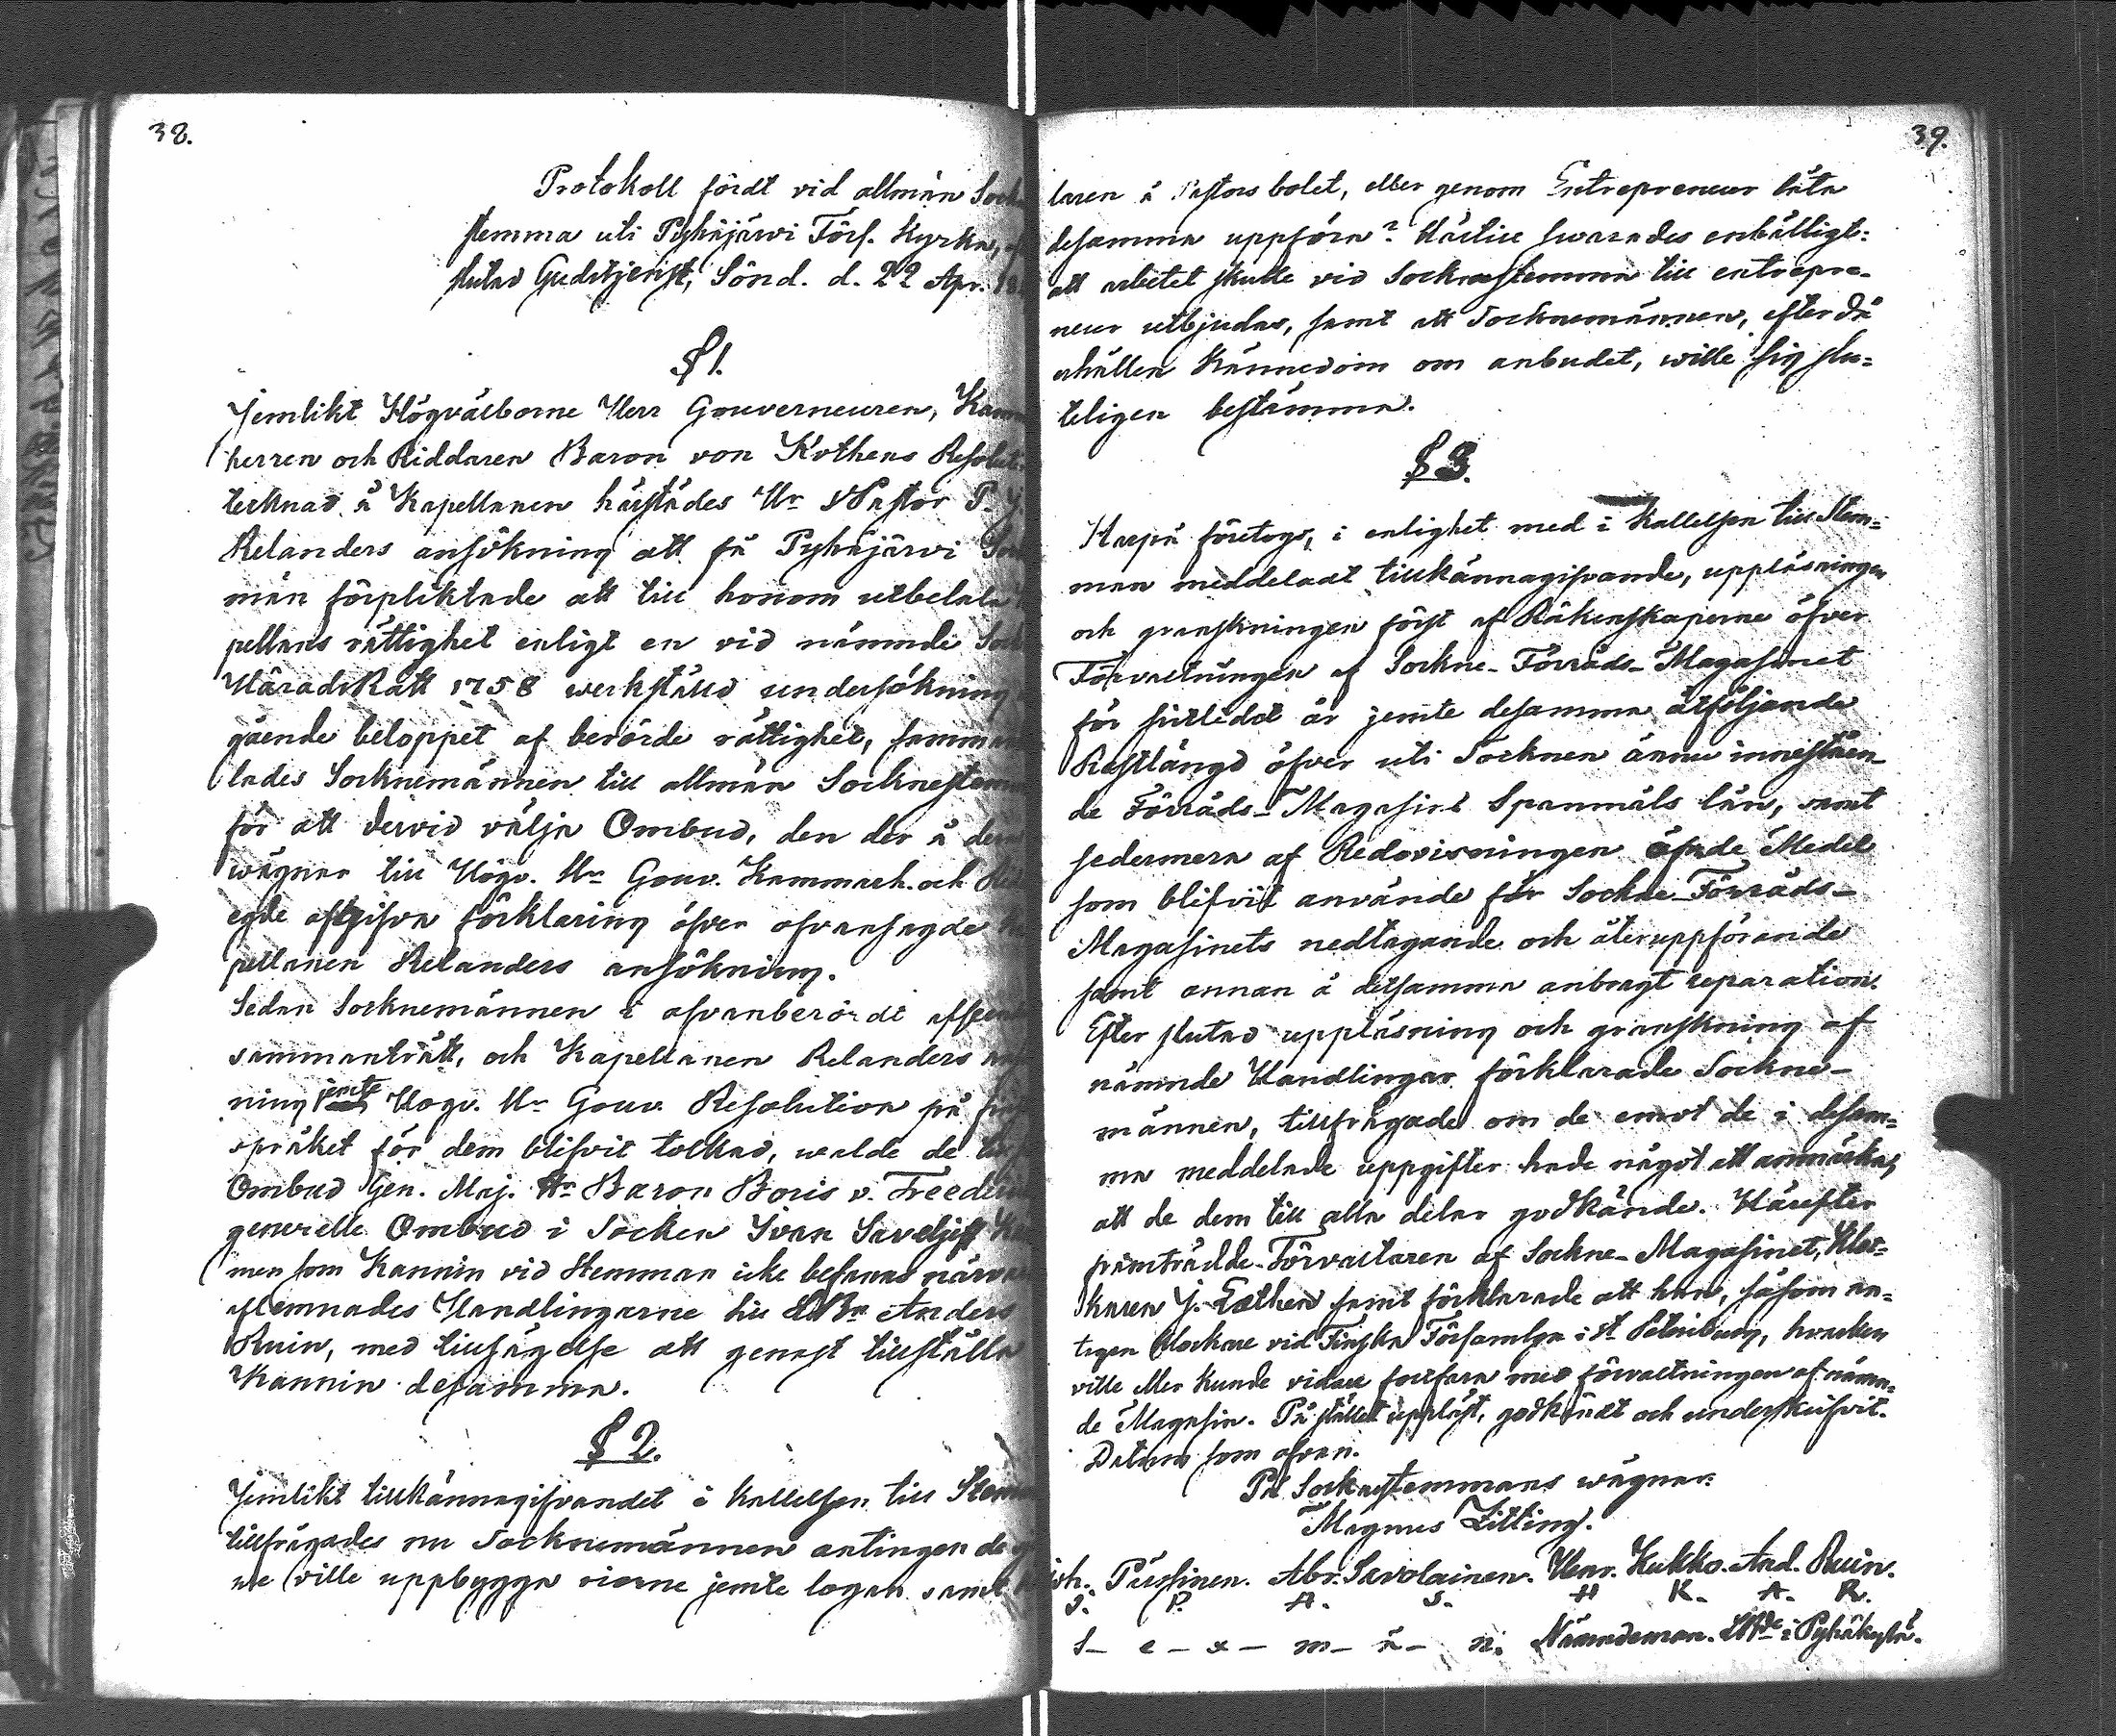 38.
Protokoll fördt vid allmän Sock
stemma uti Pyhäjärvi Förs. Kyrka,
slutad Gudstjenst, Sönd. d. 22 Apr. 18
§ 1.
Jemlikt Högvälborne Herr Gouverneuren, Kam
herren och Riddaren Baron von Kothens Resolut
tecknad å Kapellanen härstädes Hr VPastor P. J
Relanders ansökning att få Pyhäjärvi Sock
män förpliktade att till honom utbetala
pellans rättighet enligt en vid nämnde Sock
HäradsRätt 1758 werkställd undersökning
gående beloppet af berörde rättighet, samman
lades Socknemännen till allmän Socknestemm
för att dervid välja Ombud, den der å der
wägnar till Högv. Hr Gouv. Kammarh. och Rid
egde afgifva förklaring öfver ofvansagde Ka
pellanen Relanders ansökning.
Sedan Socknemännen i ofvanberördt afseen
sammanträtt, och Kapellanen Relanders an
ning jemte Högv. Hr Gouv. Resolution på fin
språket för dem blifvit tolkad, walde de til
Ombud Gen. Maj. Hr Baron Boris v. Freederi
generelle Ombud i Socken Ivan Saveljeff Ka
men som Kannin vid Stemman icke befanns närva
aflemnades Handlingarne till Anders
Ruin, med tillsägelse att genast tillställa
Kannin desamma.
§ 2.
Jemlikt tillkännagifvandet i kallelsen till Stem
tillfrågades nu Socknemännen antingen de
ne ville uppbygga riorne jemte logan samt
39.
laren å Pastors bolet, eller genom Entrepreneur låta
desamma uppföra? Härtill swarades enhälligt:
att arbetet skulle vid Socknestemma till entrepre-
neur utbjudas, samt att Socknemännen, efter då
erhållen kännedom om anbudet, wille sig slu-
teligen bestämma.
§ 3.
Härpå företogs, i enlighet med i Kallelsen till Stem-
man meddeladt tillkännagifvande, uppläsningen
och granskningen först af Räkenskaperne öfver
Förvaltningen af Sockne-Förråds-Magasinet
för sistlidet år jemte desamma åtföljande
Restlängd öfver uti Socknen ännu innestäen-
de Förråds-Magasins Spanmåls lån, samt
sedermera af Redovisningen öfver de Medel
som blifvit använde för Sockne-Förråds-
Magasinets nedtagande och återuppförande
samt annan å detsamma anbragt reparation.
Efter slutad uppläsning och granskning af
nämnde Handlingar förklarade Sockne-
männen, tillfrågade om de emot de i desam-
ma meddelade uppgifter hade något att anmärka,
att de dem till alla delar godkände. Härefter
framträdde Förvaltaren af Sockne-Magasinet, Kloc-
karen J. Læthen samt förklarade att han, såsom an-
tagen Klockare vid Finska Församlgn i St Petersburg, hvarken
ville eller kunde vidare fortfara med förvaltningen af nämn-
de Magasin. På stället uppläst, godkändt och underskrifvit.
Datum som ofvan.
På Socknestemmans wägnar:
Magnus Zitting.
Pussinen. Abr. Savolainen. Henr. Kukko. And. Ruin.
S. P. A. S. H K. A. R.
S - e - x - m - ä - n. Nämndeman. i Pyhäkylä.